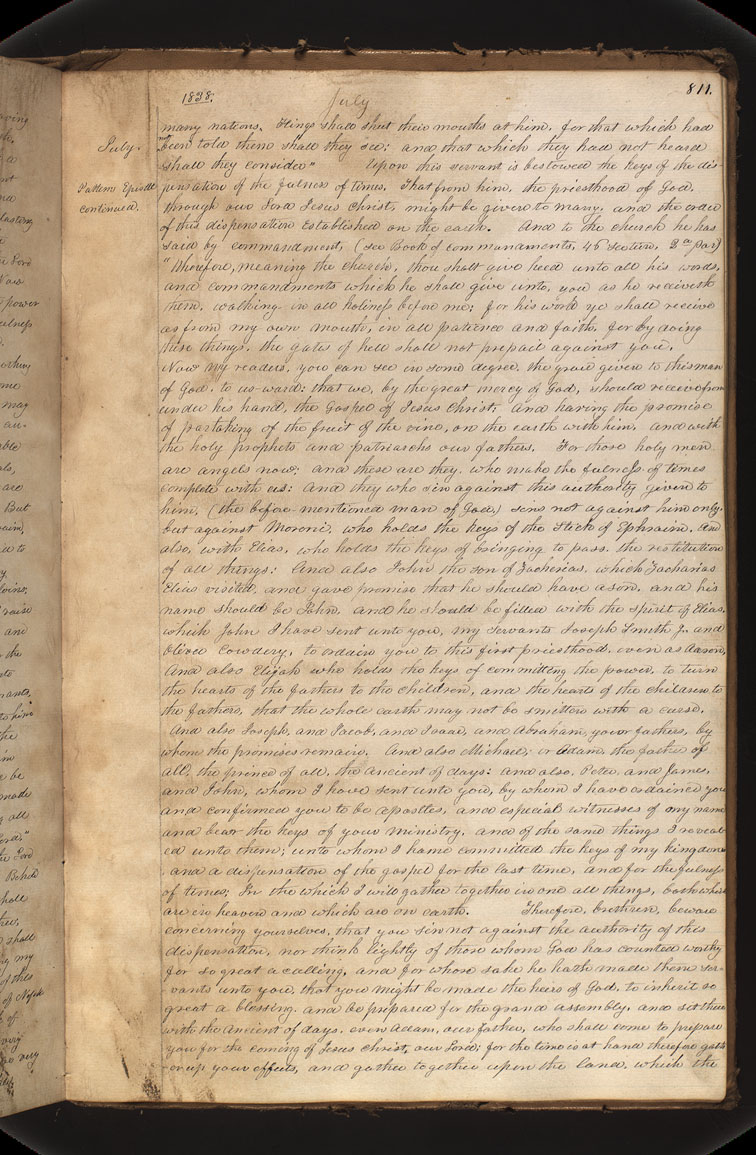 1838.
July
811.
July.
Pattens Epistle
continued.
many nations. Kings shall shut their mouths at him, for that which had
not been told them shall they see; and that which they had not heard
shall they consider" Upon this servant is bestowed the keys of the dis-
pensation of the fulness of times. That from him, the priesthood of God,
through our Lord Jesus Christ, might be given to many, and the order
of this dispensation established on the earth. And to the church he has
said by commandment, (see Book of commandments, 46 section, 2d Par)
"Wherefore, meaning the church, thou shalt give heed unto all his words,
and commandments which he shall give unto, you as he receiveth
them, walking in all holiness before me; for his word ye shall receive
as from my own mouth, in all patience and faith, for by doing
these things, the gates of hell shall not prevail against you.
Now my readers, you can see in some degree, the grace given to this man
of God, to us-ward: that we, by the great mercy of God, should receive from
under his hand, the Gospel of Jesus Christ, and having the promise
of partaking of the fruit of the vine, on the earth with him, and with
the holy prophets and patriarchs our fathers. For those holy men
are angels now; and these are they, who make the fulness of times
complete with us: and they who sin against this authority given to
him, (the before mentioned man of God,) sins not against him only,
but against Moroni, who holds the keys of the Stick of Ephraim. And
also, with Elias, who holds the keys of bringing to pass, the restitution
of all things: And also John the son of Zacharias, which Zacharias
Elias visited, and gave promise that he should have a son, and his
name should be John, and he should be filled with the spirit of Elias,
which John I have sent unto you, my servants Joseph Smith Jr. and
Oliver Cowdery, to ordain you to this first priesthood, even as Aaron,
And also Elijah who holds the keys of committing the power, to turn
the hearts of the fathers to the children, and the hearts of the children to
the fathers, that the whole earth may not be smitten with a curse.
And also Joseph, and Jacob, and Isaac, and Abraham, your fathers, by
whom the promises remain. And also Michael, or Adam the father of
all, the prince of all, the ancient of days: and also, Peter, and James,
and John, whom I have sent unto you, by whom I have ordained you
and confirmed you to be apostles, and especial witnesses of my name
and bear the keys of your ministry, and of the same things I reveal-
ed unto them; unto whom I have committed the keys of my kingdom
and a dispensation of the gospel for the last time, and for the fulness
of times; In the which I will gather together in one all things, both which
are in heaven and which are on earth. Therefore, brethren, beware
concerning yourselves, that you sin not against the authority of this
dispensation, nor think lightly of those whom God has counted worthy
for so great a calling, and for whose sake he hath made them ser-
vants unto you, that you might be made the heirs of God, to inherit so
great a blessing, and be prepared for the grand assembly, and sit there
with the ancient of days, even Adam, our father, who shall come to prepare
you for the coming of Jesus Christ, our Lord; for the time is at hand therefore gath-
er up your effects, and gather together upon the land, which the